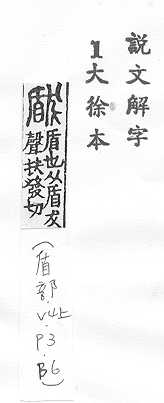 説文解字
1大徐本
瞂
盾也从盾犮
聲扶發切
(盾部.V4上.P3.B6)